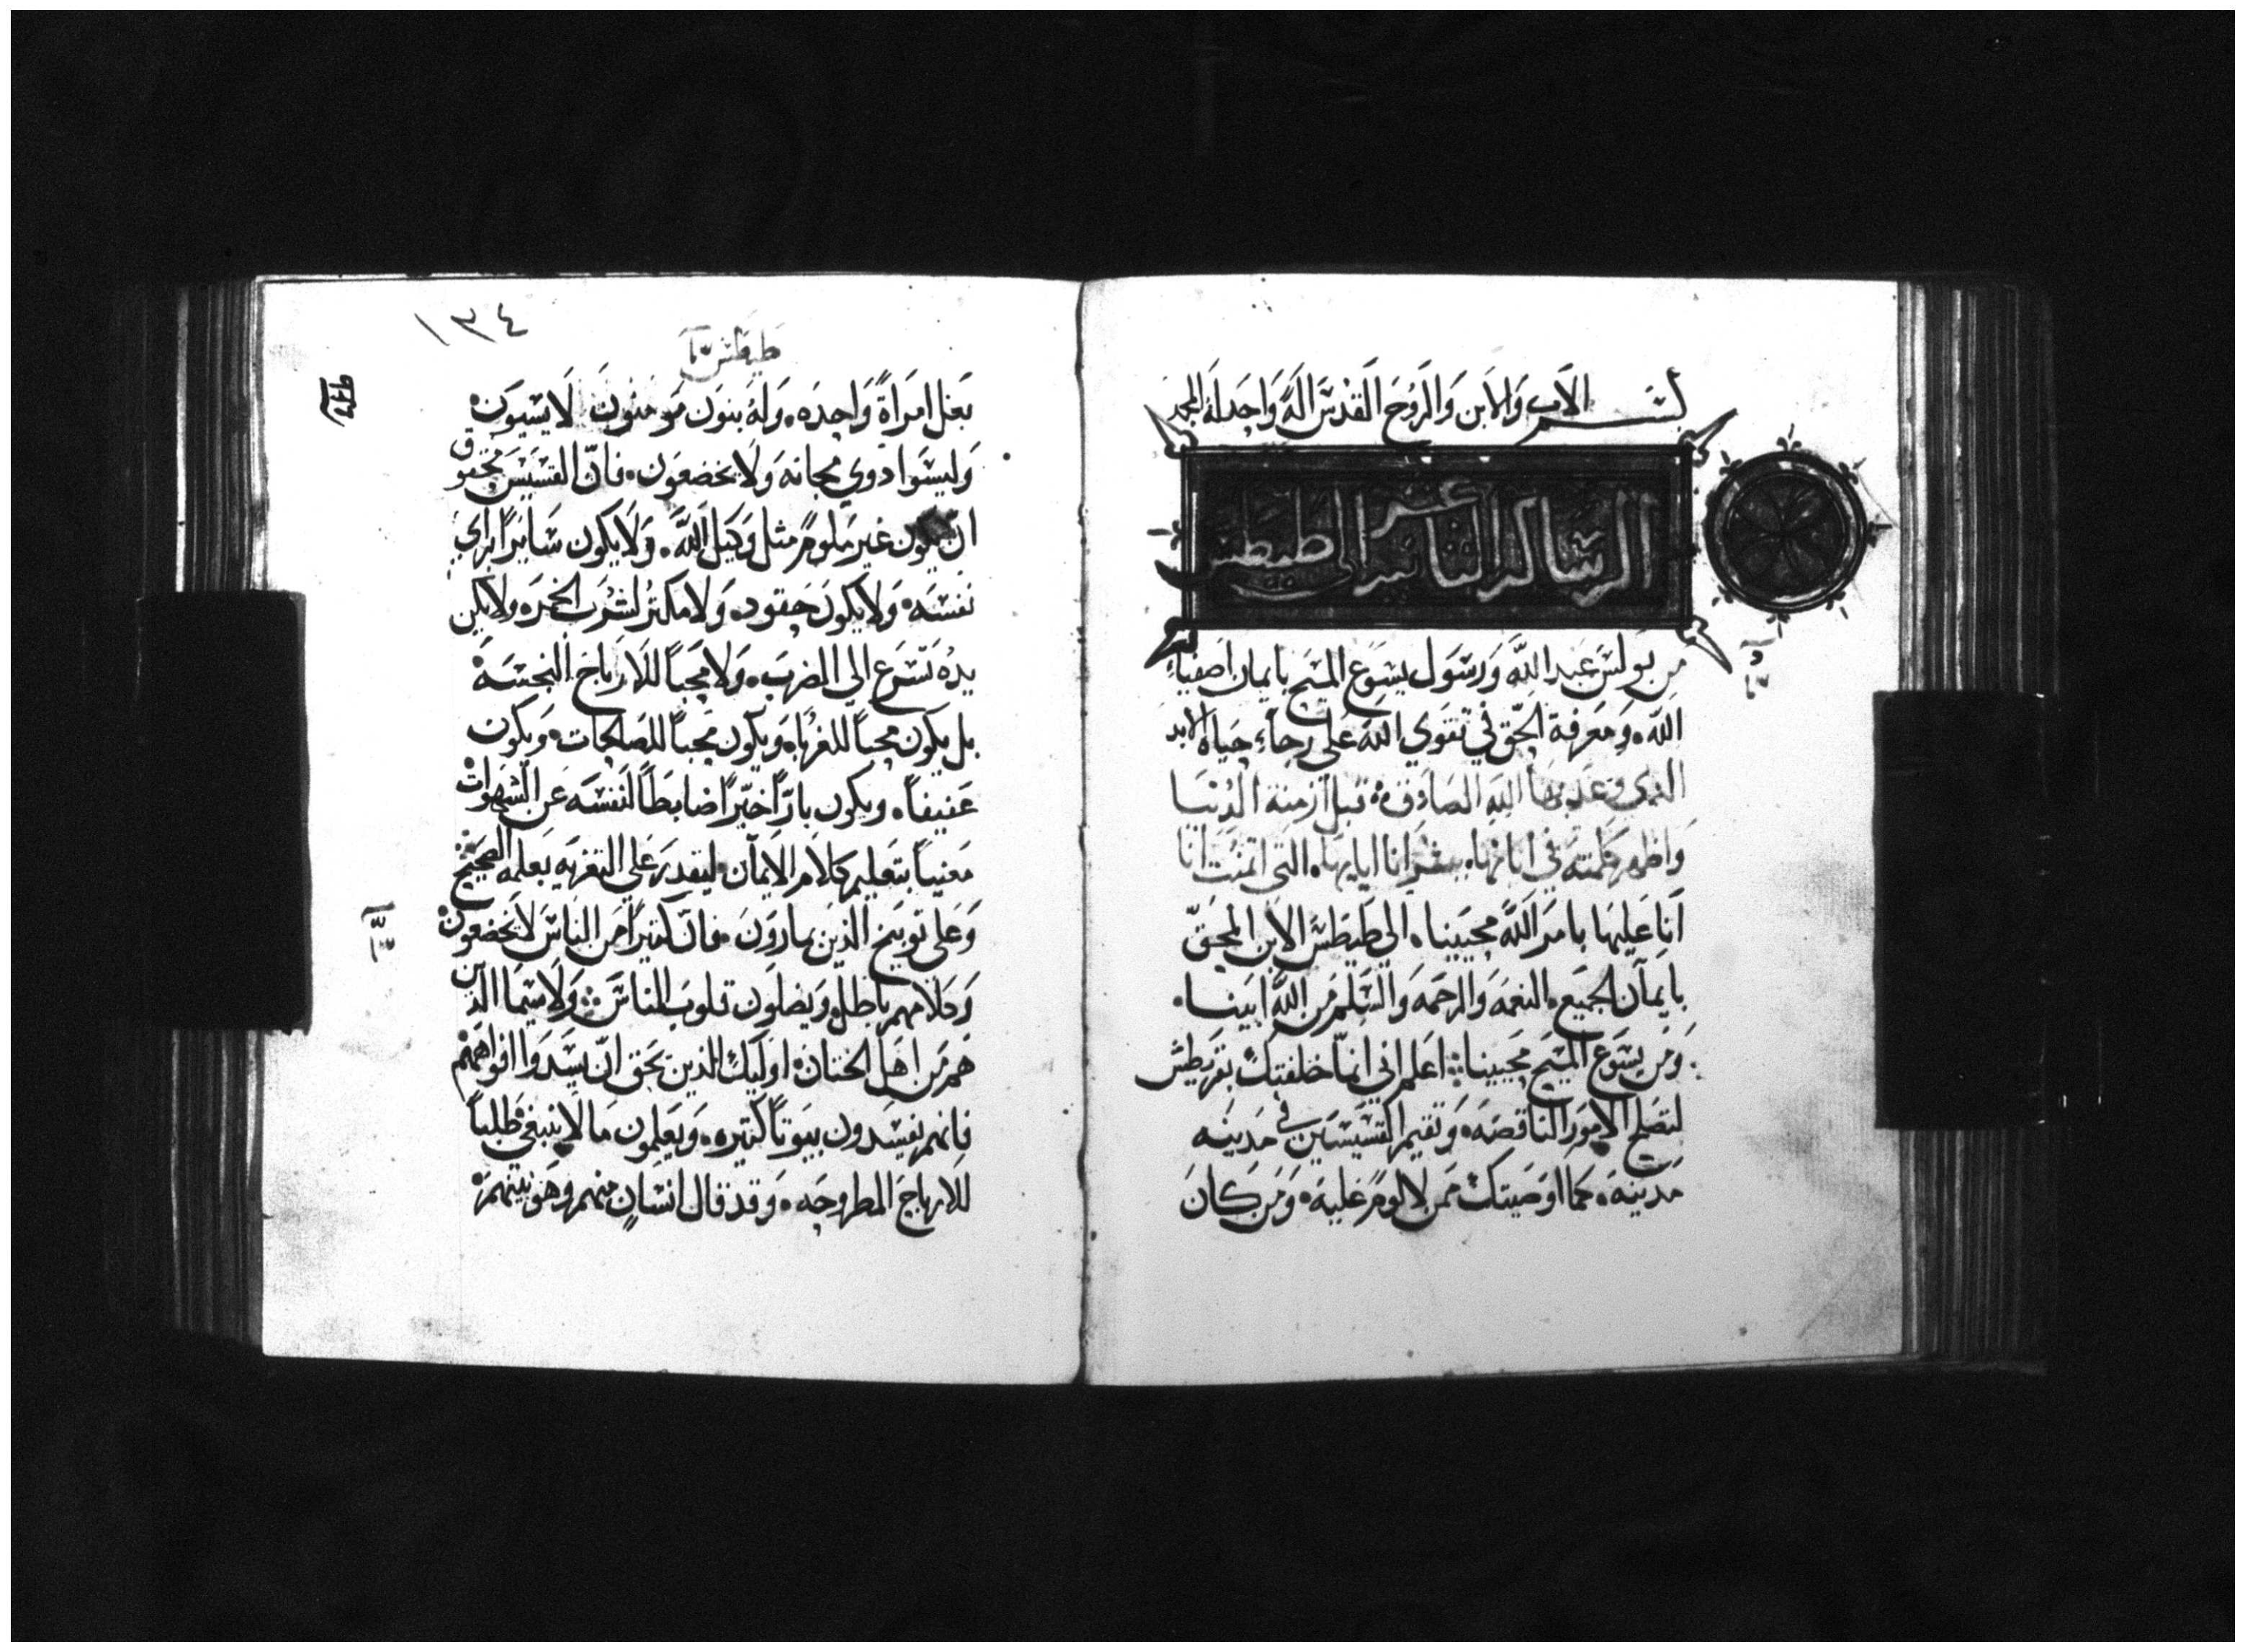 بسم الاب والابن والروح القدس اله واحد له المجد
الرساله الثانيه عشر الى طيطس
من بولس عبد الله ورسول يسوع المسيح بايمان اصفياء
الله، ومعرفة الحق في تقوي الله على رجاء حياه الابد
الذي وعد بها الله الصادق قبل ازمنة الدنيا
واظهر كلمته في ابانها، ببشرانا اياها، التي اتمنت انا
انا عليها بامر الله محيينا، الي طيطس الابن المحق
بايمان الجميع، النعمه والرحمه والسلم من الله ابينا،
ومن يسوع المسيح محيينا، اعلم اني انما خلفتك بقريطش
لتصلح الامور الناقصه، وتقيم القسيسين في مدينه
مدينه، كما اوصيتك ممن لا لوم عليه، ومن كان
١٣٤
طيطس
بعل امراة واحده، وله بنون مومنون لا يسبون
وليسوا دوي مجانه ولا يخضعون، فان القسيس محقوق
ان يكون غير ملوم مثل وكيل الله، ولا يكون سايرا براي
نفسه، ولا يكون حقود، ولا مكثر لشرب الخمر، ولا يكن
يده تسرع الي الضرب، ولا محبا للارباح النجسه
بل يكون محبا للغربا، ويكون محبا للصالحات، ويكون
عفيفا، ويكون بارا خيرا ضابطا لنفسه عن الشهوات
معنيا بتعليم كلام الايمان، ليقدر علي التعزيه بعلمه الصحيح
وعلى توبيخ الذين يمارون، فان كثيرا من الناس لا يخضعون
وكلامهم باطل، ويضلون قلوب الناس، ولا سيما الذين
هم من اهل الختان، اوليك الذين يحق ان يسدوا افواههم
فانهم يفسدون بيوتا كثيره، ويعلمون ما لا ينبغي طلبا
للارباح المطروحه، وقد قال انسان منهم وهو نبيهم